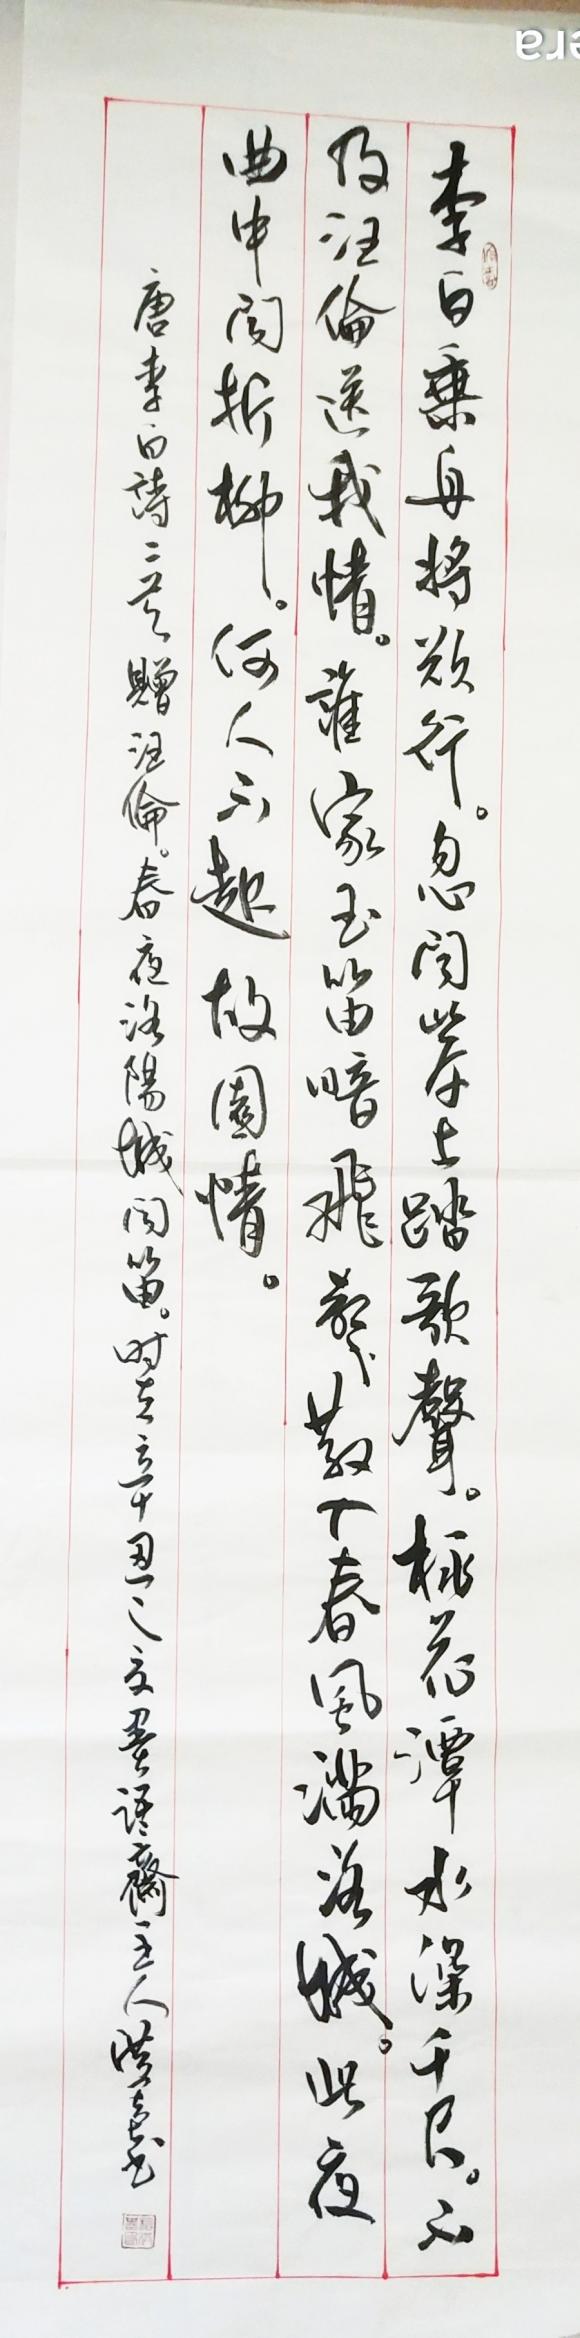 李白乘舟將欲行。忽聞岸上踏歌聲。桃花潭水深千尺。不
及汪倫送我情。誰家玉笛暗飛聲散入春風滿洛城。此夜
曲中聞折柳。何人不起故園情。
唐李白詩二首贈汪倫。春夜洛陽城聞笛。时在辛丑之夏語齋主人书